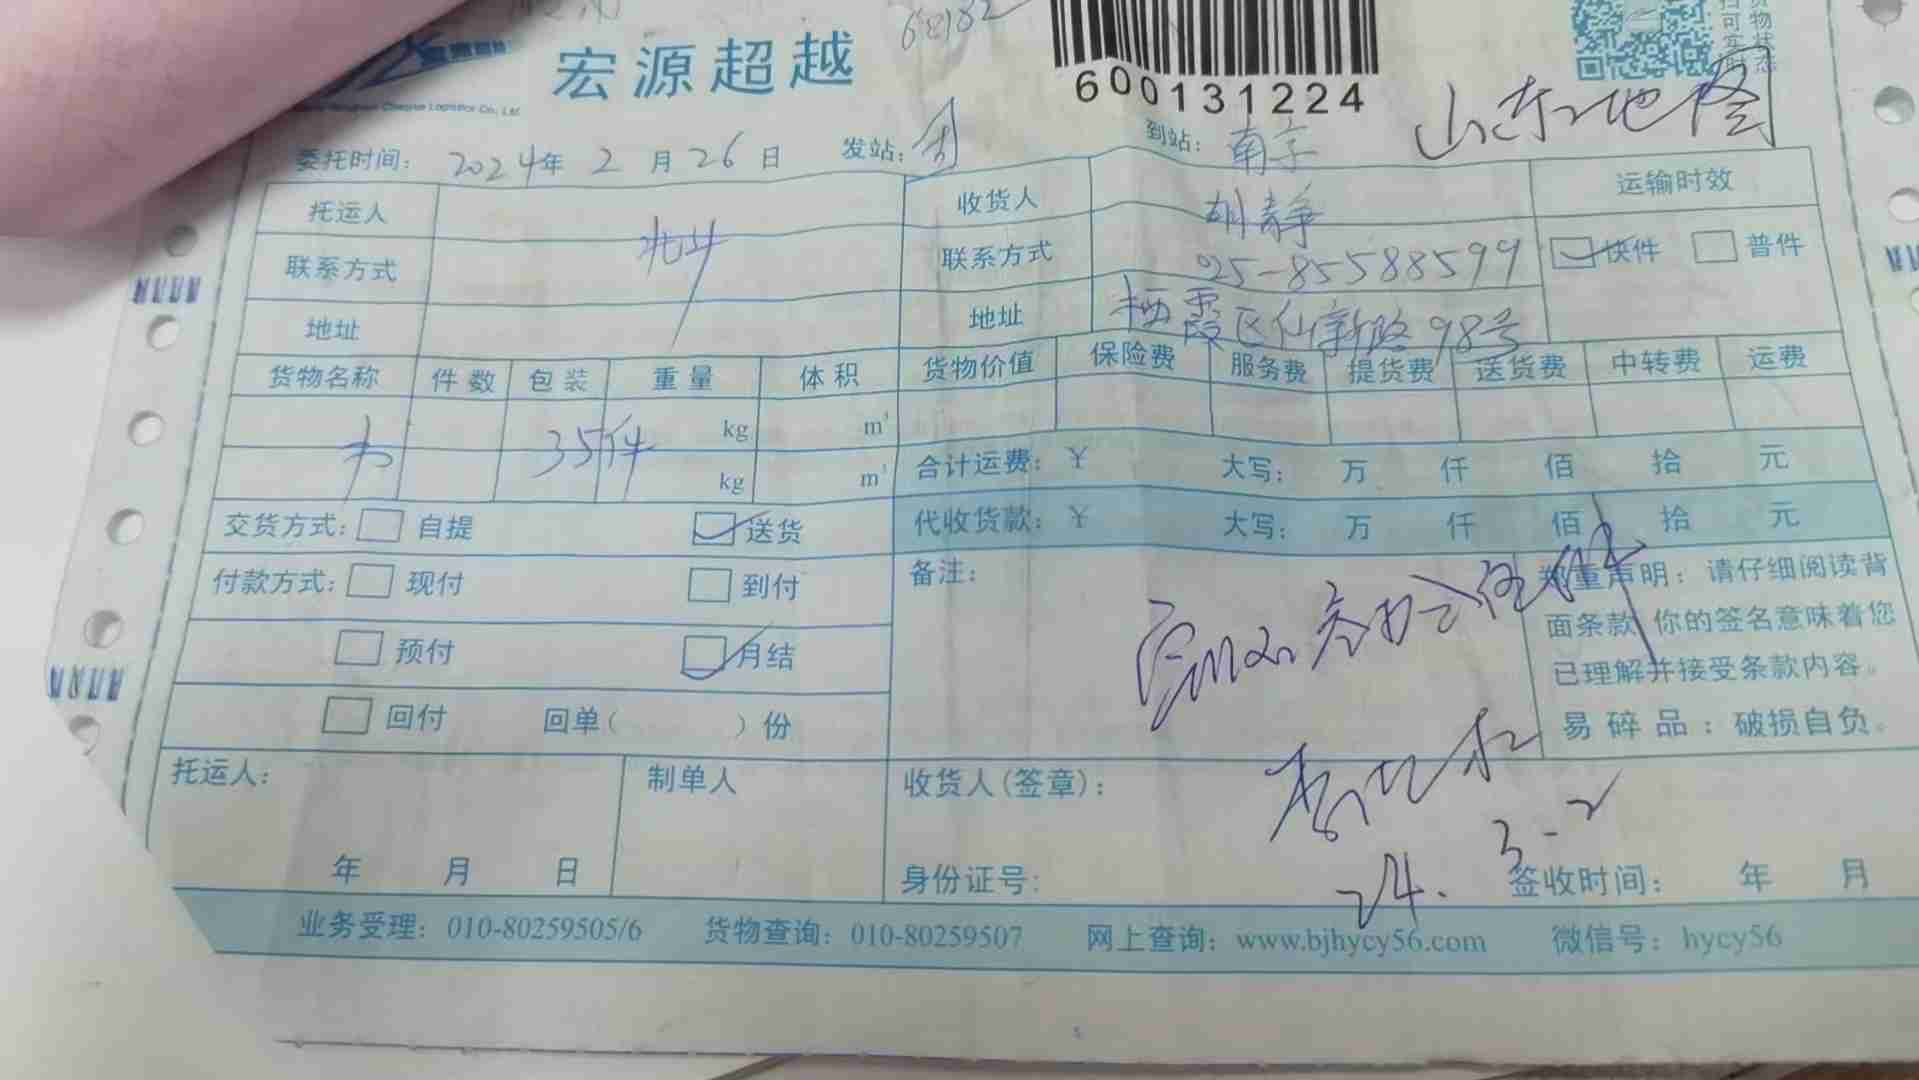 宏源超越
68182
600131224
山东地图
委托时间: 2024年 2 月 26 日 发站: 到站: 南京
托运人 北斗 收货人 胡静 运输时效
联系方式 联系方式 025-85588599 快件 普件
地址 地址 栖霞区仙新路98号
货物名称 件数 包装 重量 体积 货物价值 保险费 服务费 提货费 送货费 中转费 运费
kg m³
书 35件 kg m³
合计运费: ¥ 大写: 万 仟 佰 拾 元
交货方式: 自提 送货 代收货款: ¥ 大写: 万 仟 佰 拾 元
付款方式: 现付 到付 备注: 郑重声明: 请仔细阅读背
面条款 你的签名意味着您
预付 月结 已理解并接受条款内容。
回付 回单( )份 易碎品: 破损自负。
托运人: 制单人 收货人(签章):
24. 3-2
年 月 日 身份证号: 签收时间: 年 月
业务受理: 010-80259505/6 货物查询: 010-80259507 网上查询: www.bjhycy56.com 微信号: hycy56